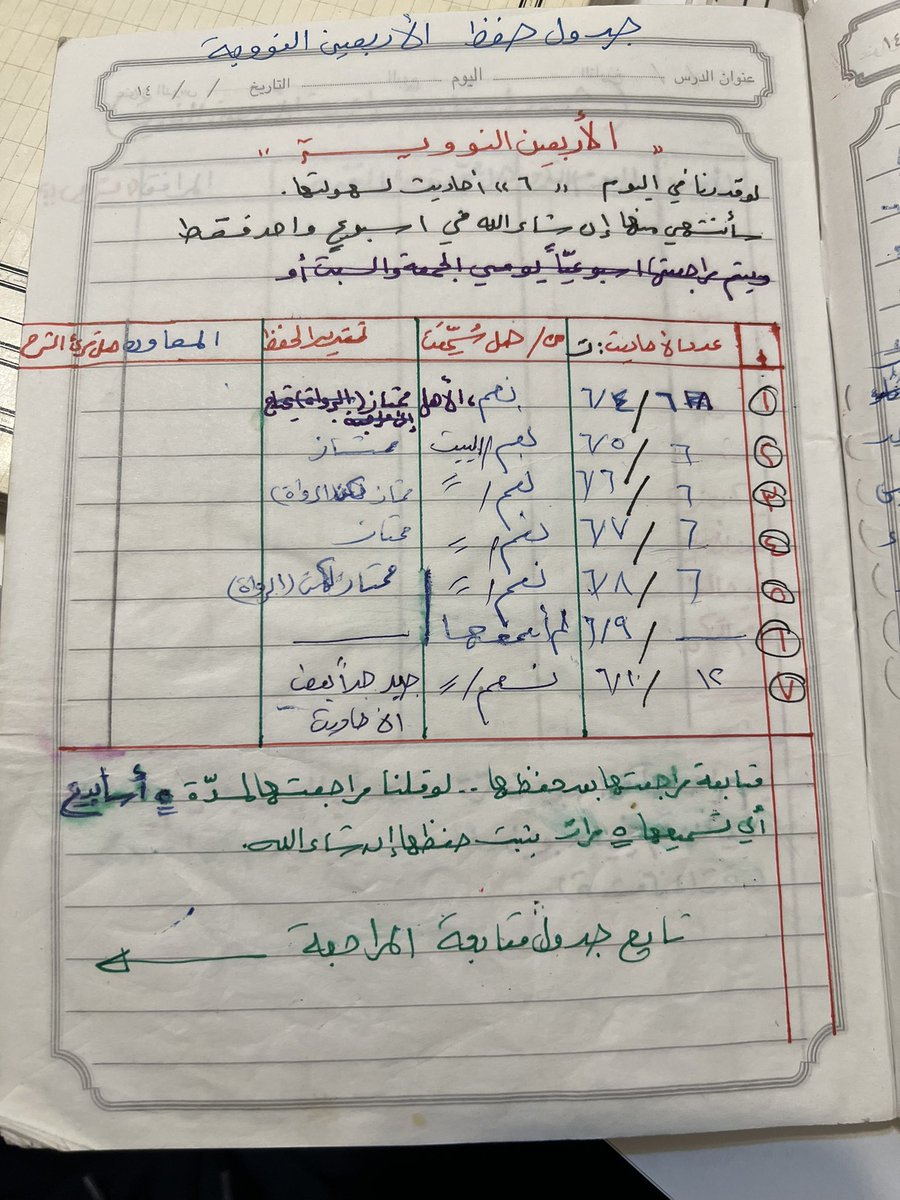 جدول حفظ الأربعين النووية
عنوان الدرس اليوم التاريخ / / ١٤
" الأربعين النوويـــة "
لو قدرنا في اليوم " ٦ " أحاديث لسهولتها.
سأنتهي منها إن شاء الله في اسبوع واحد فقط
ويتم مراجعتها اسبوعيّاً يومي الجمعة والسبت أو
م عدد الأحاديث: ت هل سُمِّعت تقدير الحفظ المعاودة هل قرئ الشرح
١ ٦ / ٦/٤ نعم، الأهل ممتاز (الرواة) تحتاج
إلى مراجعة
٢ ٦ / ٦/٥ نعم / البيت ممتاز
٣ ٦ / ٦/٦ نعم / = ممتاز (الرواة)
٤ ٦ / ٦/٧ نعم / = ممتاز
٥ ٦ / ٦/٨ نعم / = ممتاز لكن (الرواة)
٦ ــــ / ٦/٩ لم أسمعها ــــ
٧ ١٢ / ٦/١٠ نعم / = جيد جداً بعض
الأحاديث
متابعة مراجعتها بعد حفظها .. لو قلنا مراجعتها لمدّة ٥ أسابيع
أي تسميعها ٥ مرات يثبت حفظها إن شاء الله.
تابع جدول متابعة المراجعة ←